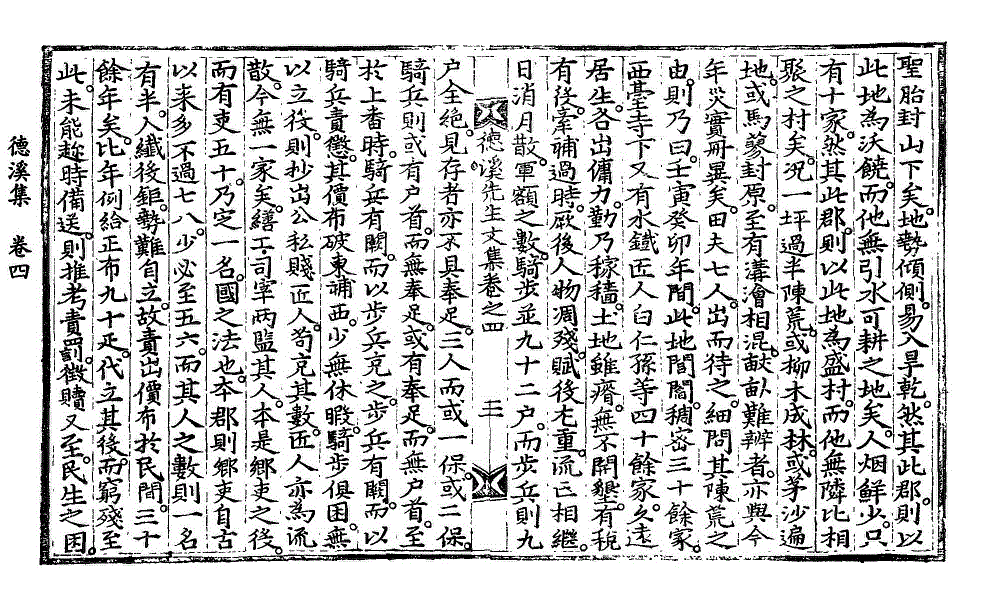 聖胎封山下矣。地勢傾側。易入旱乾。然其此郡。則以
此地為沃饒。而他無引水可耕之地矣。人烟鮮少。只
有十家。然其此郡。則以此地為盛村。而他無隣比相
聚之村矣。況一坪過半陳荒。或柳木成林。或茅沙遍
地。或馬鬣封原。至有溝澮相混。畎畝難辨者。亦與今
年災實冊異矣。田夫七人。出而待之。細問其陳荒之
由。則乃曰。壬寅癸卯年間。此地閭閻稠密三十餘家。
西臺寺下。又有水鐵匠人白仁孫等四十餘家。久遠
居生。各出傭力。勤乃稼穡。土地雖瘠。無不開墾。有稅
有役。牽補過時。厥後人物凋殘。賦役尤重。流亡相繼。
日消月散。軍額之數。騎步並九十二户。而步兵則九
德溪先生文集卷之四 三十
户全絶。見存者亦不具奉足。三人而或一保。或二保。
騎兵則或有户首。而無奉足。或有奉足。而無户首。至
於上畨時。騎兵有闕。而以步兵充之。步兵有闕。而以
騎兵責懲。其價布破東補西。少無休暇。騎步俱困。無
以立役。則抄出公私賤匠人。苟充其數。匠人亦為流
散。今無一家矣。繕工司宰兩監其人。本是鄉吏之役。
而有吏五十。乃定一名。國之法也。本郡則鄉吏自古
以来。多不過七八。少必至五六。而其人之數則一名
有半。人纖役鉅。勢難自立。故責出價布於民間。三十
餘年矣。比年例給正布九十疋。代立其役。而窮殘至
此。未能趂時備送。則推考責罰。徵贖又至。民生之困。
德溪集 卷四